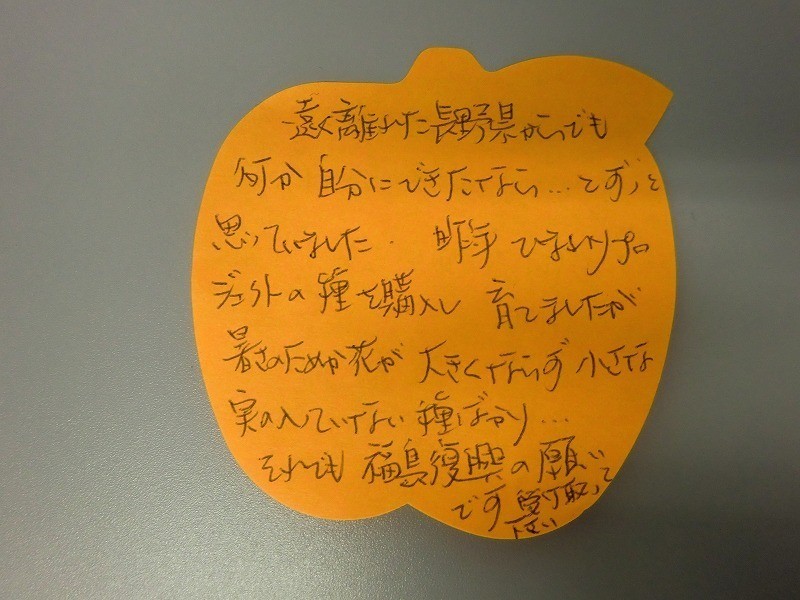 遠く離れた長野県からでも
何か 自分にできたなら…とずっと
思っていました. 昨年 ひまわりプロ
ジェクトの 種を購入し 育てましたが
暑さのためか花が 大きくならず 小さな
実の入っていない 種ばかり…
それでも 福島復興の願い
です 受け取って
下さい